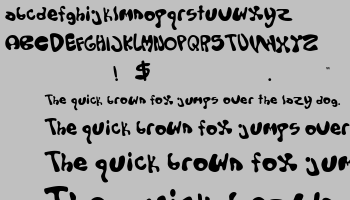 abcdefghijklmnopqrstuvwxyz
ABCDEFGHIJKLMNOPQRSTUVWXYZ
! $ . -
The quick brown fox jumps over the lazy dog.
The quick brown fox jumps over
The quick brown fox jum
The quick brown